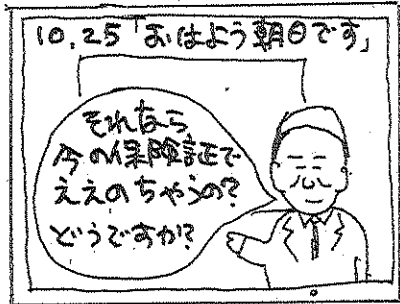 10.25「おはよう朝日です」
それなら
今の保険証で
ええのちゃうの?
どうですか?